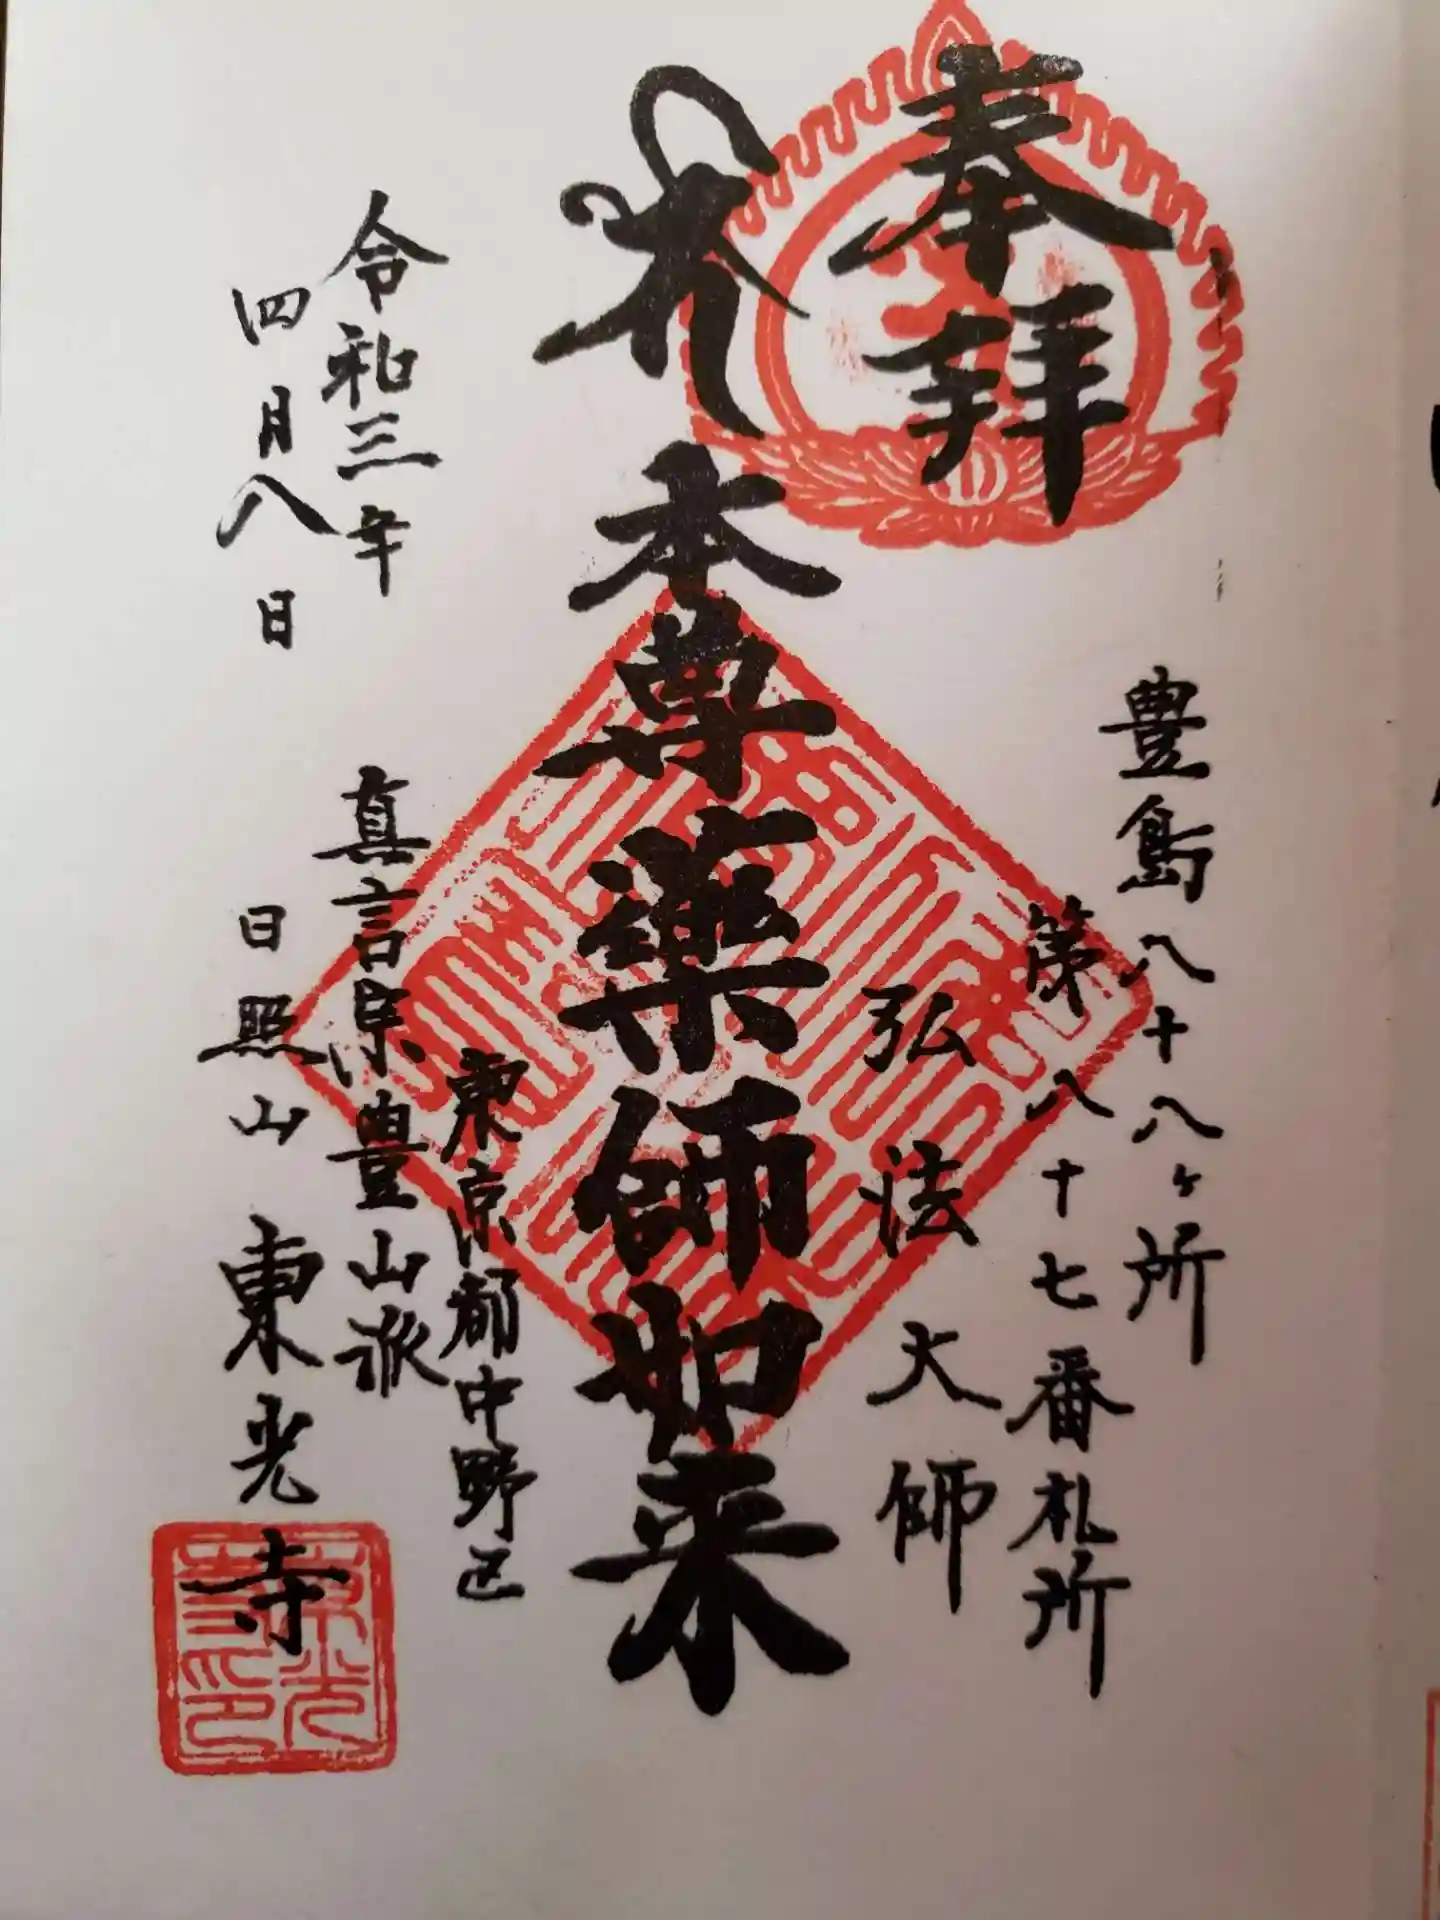 奉拝
豊島八十八ヶ所
第八十七番札所
弘法大師
本尊薬師如来
東京都中野区
令和三年
四月八日
真言宗豊山派
日照山東光寺
東光寺印